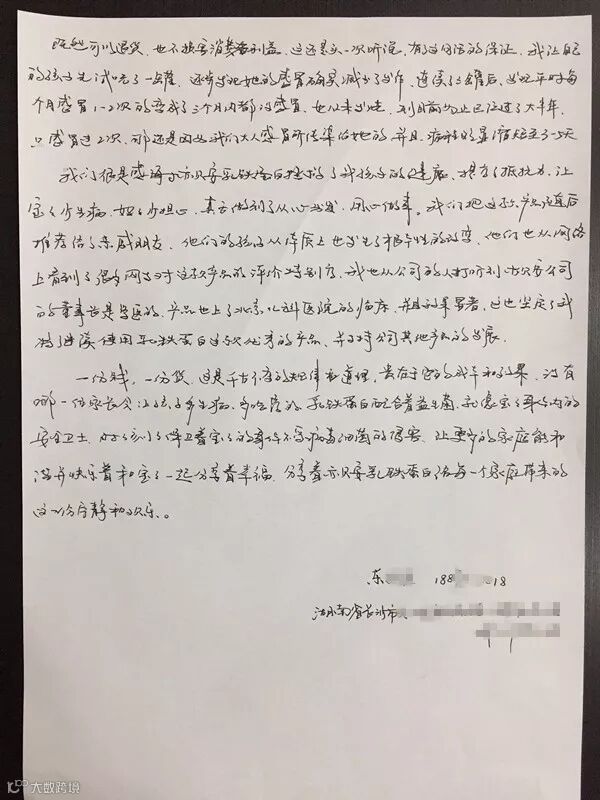 既然可以退货，也不损害消费者利益，这还是头一次听说，有了这句话的保证，我让自己
的孩子先试吃了一罐，还发现她的感冒确实减少了发作，连续了三罐后，发现平时每
个月感冒1-2次的变成了三个月内都没感冒，女儿来，到目前为止已经过了大半年，
只感冒过2次，那还是因为我们大人感冒所传染给她的，并且病程明显缩短至了一天
我们很是感谢亦贝安乳铁蛋白了我孩子的健康，提高了抵抗力，让
宝宝少生病，妈妈少担心，真正做到了从心出发，用心做事。我们把这款产品后
推荐给了亲戚朋友，他们的孩子从体质上也发生了根本性的改变，他们也从网络
上看到了很多网友对这款产品的评价特别好，我也从公司的人打听到亦贝安公司
的董事长是学医的，产品也上了北京儿科医院的临床，并且效果显著，这也坚定了我
持续使用乳铁蛋白这款优秀的产品，并支持公司其他产品的发展。
一份钱，一份货，这是千古不变的规律和道理，贵在于它的成本和效果，没有
哪一位家长会让孩子多生病，多吃药的，乳铁蛋白配合着益生菌，就像宝宝身体内的
安全卫士，时刻保卫着宝宝的身体不受病毒细菌的侵害，让更多的家庭能和
谐并快乐着和宝宝一起分享着幸福，分享着亦贝安乳铁蛋白给每一个家庭带来的
这一份宁静和欢乐。
东 188 18
湖南省长沙市
大数跨境